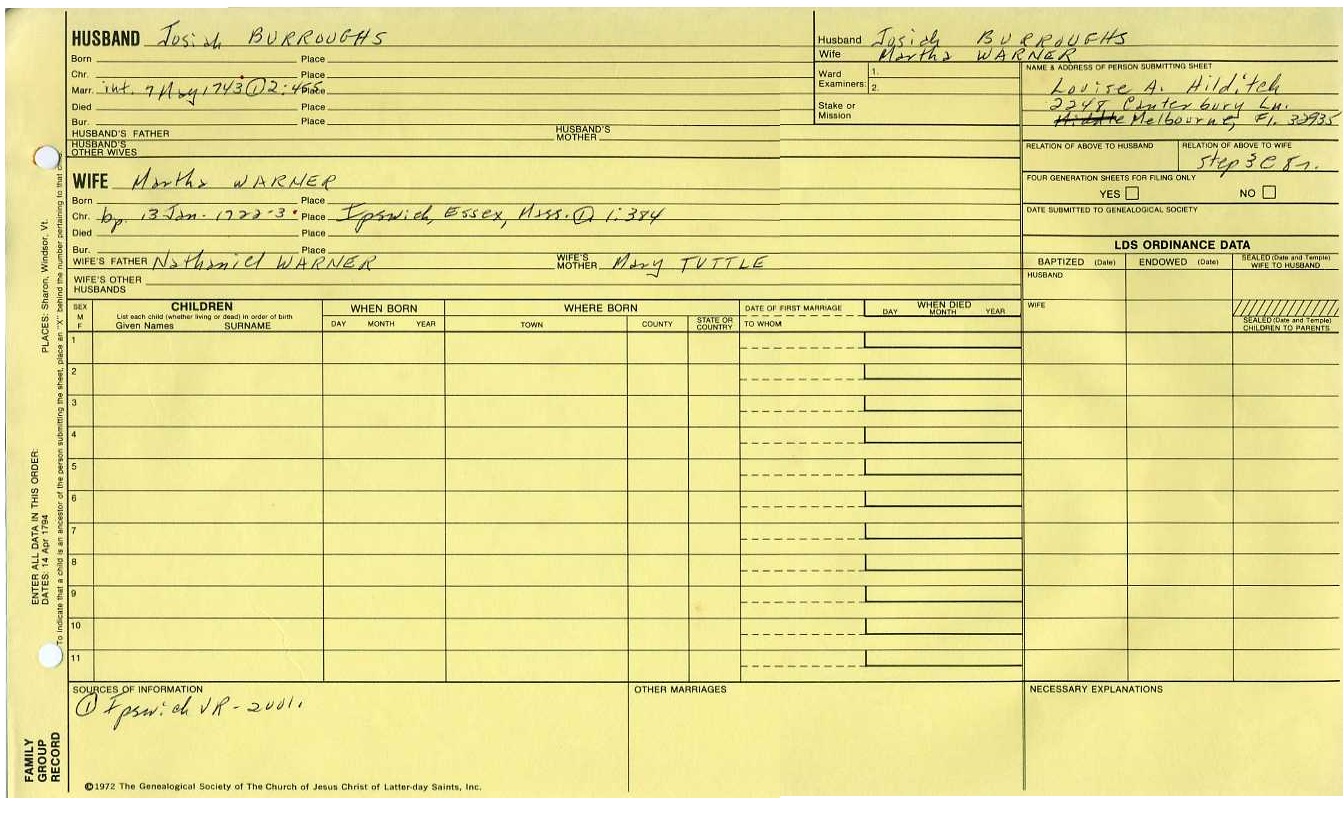 HUSBAND Josiah BURROUGHS
Born Place
Chr. Place
Marr. int. 7 May 1743 ① 2:465 Place
Died Place
Bur. Place
HUSBAND'S FATHER HUSBAND'S MOTHER
HUSBAND'S OTHER WIVES
WIFE Martha WARNER
Born Place
Chr. bp. 13 Jan. 1722-3 Place Ipswich, Essex, Mass. ① 1:384
Died Place
Bur. Place
WIFE'S FATHER Nathaniel WARNER WIFE'S MOTHER Mary TUTTLE
WIFE'S OTHER HUSBANDS
Husband Josiah BURROUGHS
Wife Martha WARNER
Ward Examiners: 1.
2.
Stake or Mission
NAME & ADDRESS OF PERSON SUBMITTING SHEET
Louise A. Hilditch
2248 Canterbury Ln.
Melbourne, Fl. 32935
RELATION OF ABOVE TO HUSBAND RELATION OF ABOVE TO WIFE
step 3C 8r.
FOUR GENERATION SHEETS FOR FILING ONLY
YES NO
DATE SUBMITTED TO GENEALOGICAL SOCIETY
LDS ORDINANCE DATA
BAPTIZED (Date) ENDOWED (Date) SEALED (Date and Temple) WIFE TO HUSBAND
HUSBAND
WIFE
SEALED (Date and Temple) CHILDREN TO PARENTS
SEX M F
CHILDREN
List each child (whether living or dead) in order of birth
Given Names SURNAME
WHEN BORN
DAY MONTH YEAR
WHERE BORN
TOWN COUNTY STATE OR COUNTRY
DATE OF FIRST MARRIAGE
TO WHOM
WHEN DIED
DAY MONTH YEAR
1
2
3
4
5
6
7
8
9
10
11
SOURCES OF INFORMATION
① Ipswich VR - 2001.
OTHER MARRIAGES
NECESSARY EXPLANATIONS
©1972 The Genealogical Society of The Church of Jesus Christ of Latter-day Saints, Inc.
FAMILY GROUP RECORD
ENTER ALL DATA IN THIS ORDER:
DATES: 14 Apr 1794
PLACES: Sharon, Windsor, Vt.
To indicate that a child is an ancestor of the person submitting the sheet, place an "X" behind the number pertaining to that